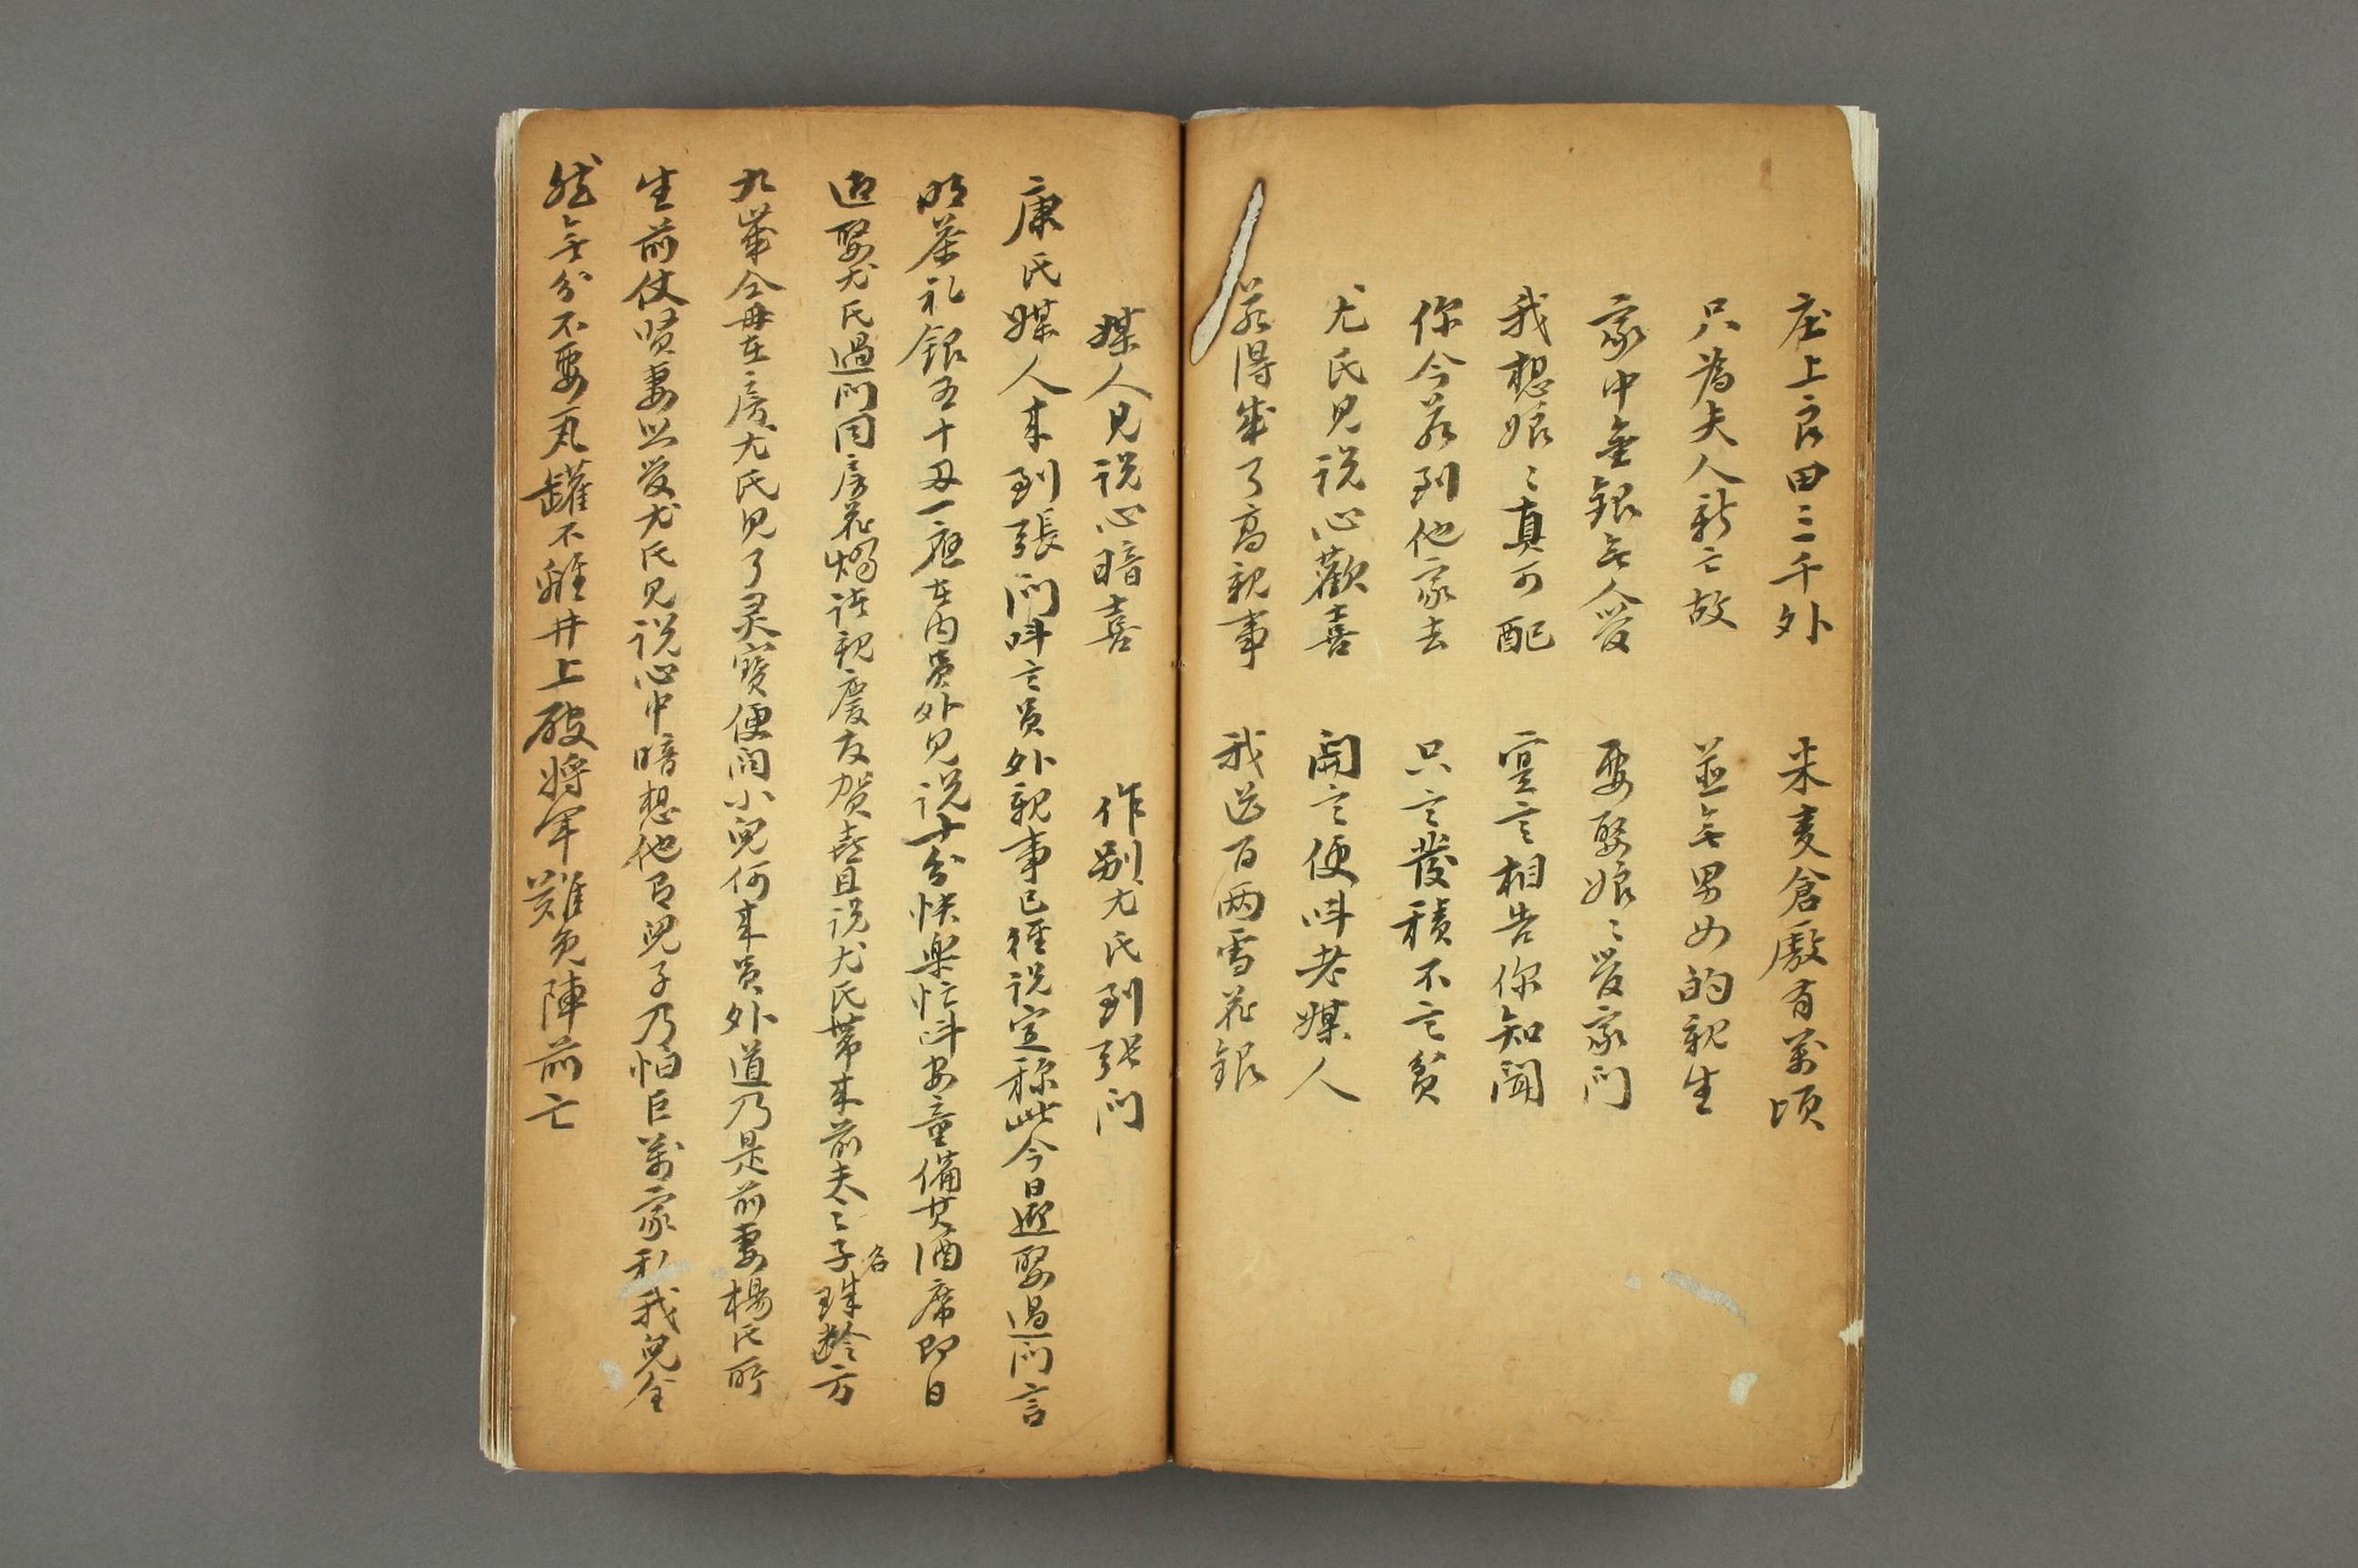 庄上良田三千外　米麦倉廒有萬頃
只為夫人新亡故　並無男女的親生
家中金銀無人管　要娶娘〻管家門
我想娘〻真可配　寔言相告你知聞
你今若到他家去　只言發積不言貧
尤氏見说心歡喜　開言便呌老媒人
若得成了高親事　我送百两雪花銀
媒人見说心暗喜　作别尤氏到張门
康氏媒人来到張门呌言員外親事已經说定称此今日迎娶過门言
明茶礼銀五十两一應在内員外見说十分快樂忙呌安童備其酒席即日
迎娶尤氏過门同房花燭諸親慶友贺喜且说尤氏帶来前夫之子名珠齡方
九歲仝母在房尤氏見了灵寳便问小兒何来員外道乃是前妻楊氏所
生前仗賢妻照管尤氏見说心中暗想他有兒子乃怕巨萬家私我兒全
然無分不要瓦罐不離井上破将军難免陣前亡